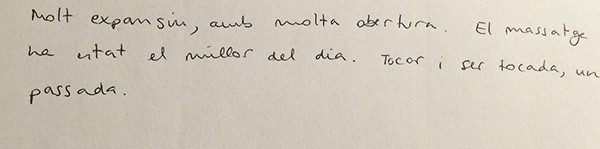 Molt expansiu, amb molta obertura. El massatge
ha estat el millor del dia. Tocar i ser tocada, un
passada.